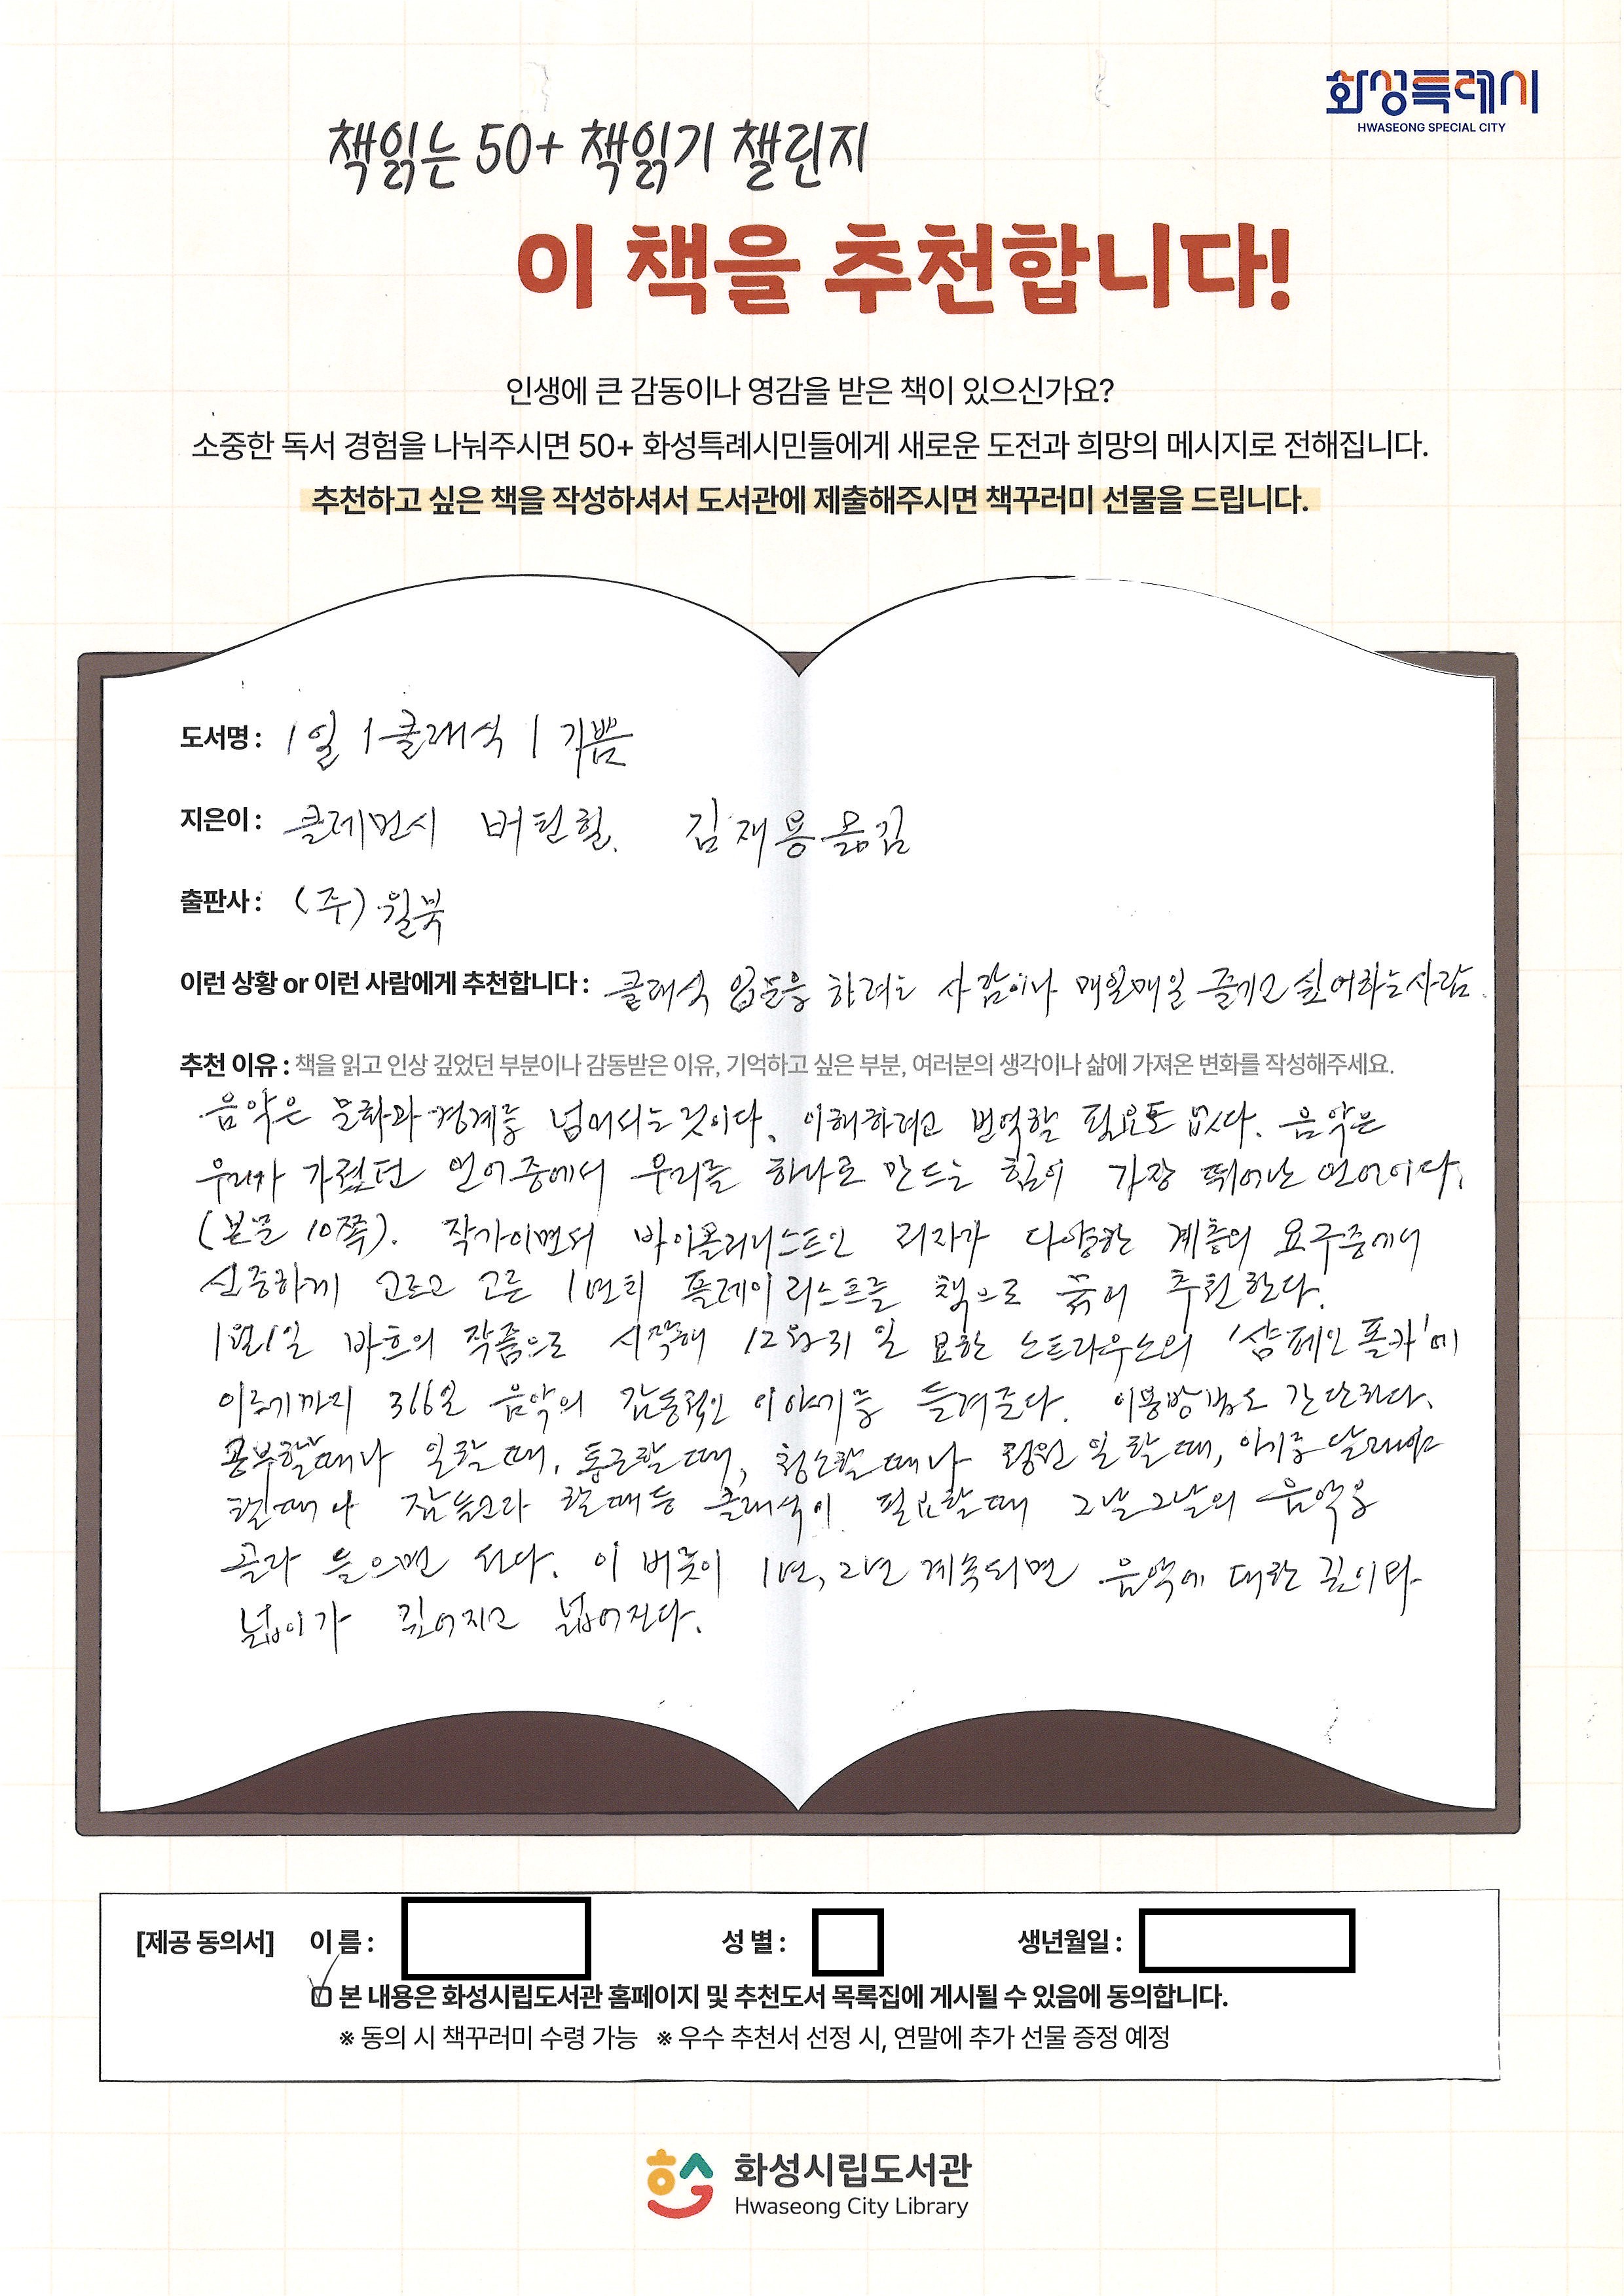 화성특례시
HWASEONG SPECIAL CITY
책읽는 50+ 책읽기 챌린지
이 책을 추천합니다!
인생에 큰 감동이나 영감을 받은 책이 있으신가요?
소중한 독서 경험을 나눠주시면 50+ 화성특례시민들에게 새로운 도전과 희망의 메시지로 전해집니다.
추천하고 싶은 책을 작성하셔서 도서관에 제출해주시면 책꾸러미 선물을 드립니다.
도서명 : 1일 1클래식 1기쁨
지은이 : 클레먼시 버턴힐. 김재용옮김
출판사 : (주) 윌북
이런 상황 or 이런 사람에게 추천합니다 : 클래식 입문을 하려는 사람이나 매일매일 즐기고 싶어하는사람.
추천 이유 : 책을 읽고 인상 깊었던 부분이나 감동받은 이유, 기억하고 싶은 부분, 여러분의 생각이나 삶에 가져온 변화를 작성해주세요.
음악은 문화과 경계를 넘어서는것이다. 이해하려고 번역할 필요도 없다. 음악은
우리가 가졌던 언어중에서 우리를 하나로 만드는 힘이 가장 뛰어난 언어이다.
(본문 10쪽). 작가이면서 바이올리니스트인 저자가 다양한 계층의 요구중에서
신중하게 고르고 고른 1년치 플레이리스트를 책으로 묶어 추천한다.
1월1일 바흐의 작품으로 시작해 12월31일 요한 스트라우스의 '샴페인 폴카'에
이르기까지 366일 음악의 감동적인 이야기를 들려준다. 이용방법도 간단하다.
공부할때나 일할때, 통근할때, 청소할때나 정원일할때, 아기를 달래야
할때나 잠들고자 할때등 클래식이 필요할때 그날그날의 음악을
골라 들으면 된다. 이 버릇이 1년, 2년 계속되면 음악에 대한 깊이와
넓이가 깊어지고 넓어진다.
[제공 동의서] 이 름 : 성 별 : 생년월일 :
본 내용은 화성시립도서관 홈페이지 및 추천도서 목록집에 게시될 수 있음에 동의합니다.
※ 동의 시 책꾸러미 수령 가능 ※ 우수 추천서 선정 시, 연말에 추가 선물 증정 예정
화성시립도서관
Hwaseong City Library